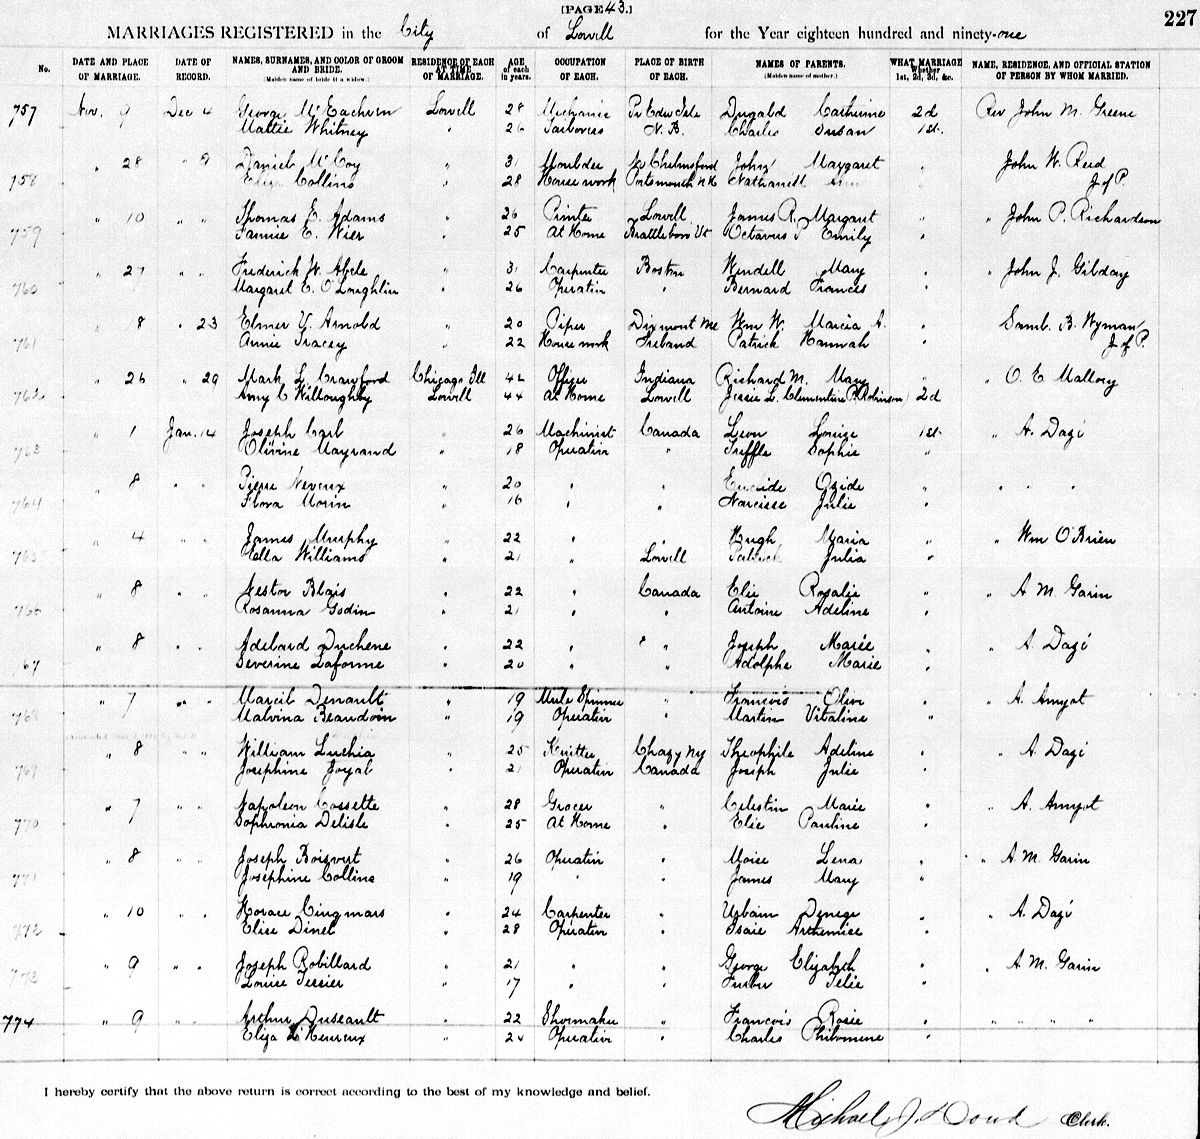 [PAGE 43.]
227
MARRIAGES REGISTERED in the City of Lowell for the Year eighteen hundred and ninety-one
No. DATE AND PLACE OF MARRIAGE. DATE OF RECORD. NAMES, SURNAMES, AND COLOR OF GROOM AND BRIDE. (Maiden name of bride if a widow.) RESIDENCE OF EACH AT TIME OF MARRIAGE. AGE of each in years. OCCUPATION OF EACH. PLACE OF BIRTH OF EACH. NAMES OF PARENTS. (Maiden name of mother.) WHAT MARRIAGE Whether 1st, 2d, 3d, &c. NAME, RESIDENCE, AND OFFICIAL STATION OF PERSON BY WHOM MARRIED.
757 Nov. 9 Dec 4 George McEachern Lowell 28 Mechanic Pr Edw Isle Dugald Catherine 2d Rev John M. Greene
Mattie Whitney " 26 N. B. Charles Susan 1st.
758 " 28 " 9 Daniel McCoy " 31 Moulder No Chelmsford John Margaret " John W. Reed
Eliza Collins " 28 House work Portsmouth NH Nathaniel J of P.
759 " 10 " " Thomas E. Adams " 26 Printer Lowell James R. Margaret " " John P. Richardson
Fannie E. Wier " 25 At Home Brattleboro Vt Octavus P Emily "
760 " 27 " " Frederick W. Abele " 31 Carpenter Boston Wendell Mary " " John J. Gilday
Margaret E. O'Loughlin " 26 Operative " Bernard Frances "
761 " 8 " 23 Elmer Y. Arnold " 20 Piper Dixmont Me Wm W. Marcia A. " Saml. B. Wyman
Annie Tracey " 22 House work Ireland Patrick Hannah " J of P.
762 " 26 " 29 Mark L. Crawford Chicago Ill 42 Officer Indiana Richard M. Mary " " O. E Mallory
Amy C Willoughby Lowell 44 At Home Lowell Jessie L. Clementine P (Robinson) 2d
763 " 1 Jan. 14 Joseph Carl " 26 Machinist Canada Leon Louise 1st. " A. Dazé
Olivine Mayrand " 18 Operative " Truffle Sophie "
764 " 8 " " Pierre Neveux " 20 " " Euclide Ozide " " " "
Flora Morin " 16 " " Narcisse Julie "
765 " 4 " " James Murphy " 22 " " Hugh Maria " " Wm O'Brien
Ella Williams " 21 " Lowell Patrick Julia "
766 " 8 " " Nestor Blais " 22 " Canada Elie Rosalie " " A M Garin
Rosanna Godin " 21 " " Antoine Adeline "
67 " 8 " " Adelard Duchene " 22 " " " Joseph Marie " " A Dazé
Severine Laforme " 20 " " Adolphe Marie "
768 " 7 " " Marcil Denault " 19 Mule Spinner " Francois Oliv " " A. Amyot
Malvina Beaudoin " 19 Operative " Martin Vitaline "
769 " 8 " " William Lushia " 25 Knitter Chazy NY Theophile Adeline " " A. Dazé
Josephine Joyal " 21 Operative Canada Joseph Julie "
770 " 7 " " Napoleon Cossette " 28 Grocer " Celestin Marie " " A. Amyot
Sophronia Delisle " 25 At Home " Elie Pauline "
771 " 8 " " Joseph Boisvert " 26 Operative " Moise Lena " " A. M. Garin
Josephine Collins " 19 " " James Mary "
772 " 10 " " Horace Cinqmars " 24 Carpenter " Urbain Denege " " A. Dazé
Elise Dinel " 28 Operative " Isaie Arthemise "
773 " 9 " " Joseph Robillard " 21 " " George Elizabeth " " A. M. Garin
Louise Tessier " 17 " "
774 " 9 " " Arthur Duseault " 22 Shoemaker " Francois Rosie " " " "
Eliza L'Heureux " 24 Operative " Charles Philomene "
I hereby certify that the above return is correct according to the best of my knowledge and belief.
Michael J. Dowd Clerk.